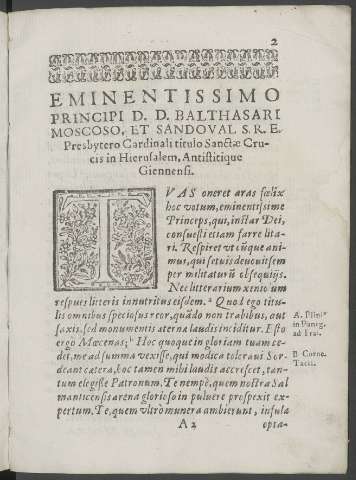 2
EMINENTISSIMO
PRINCIPI D. D. BALTHASARI
MOSCOSO, ET SANDOVAL S. R. E.
Presbytero Cardinali titulo Sanctæ Cru-
cis in Hierusalem, Antistitique
Giennensi.
TVAS oneret aras fœlix
hoc votum, eminentissime
Princeps, qui, instar Dei,
consuesti etiam farre lita-
ri. Respiret vt cũque ani-
mus, qui se tuis deuouit sem
per militaturũ obsequijs.
Nec litterarium xenium
respues litteris innutritus eisdem. ᵃ Quod ego titu-
lis omnibus speciosius reor, quãdo non trabibus, aut
saxis, sed monumentis æternæ laudis inciditur. Esto
ergo Mœcenas; ᵇ Hoc quoque in gloriam tuam ce-
det, me ad summa vexisse, qui modica toleraui. Sor-
deant cætera, hoc tamen mihi laudis accrescet, tan-
tum elegisse Patronum. Te nempè, quem nostra Sal
manticensis arena glorioso in puluere prospexit ex-
pertum, Te, quem vltrò munera ambierunt, insula
A. Pliniᵒ
in Paneg.
ad Tra.
B Corne.
Tacit.
A 2
opta-